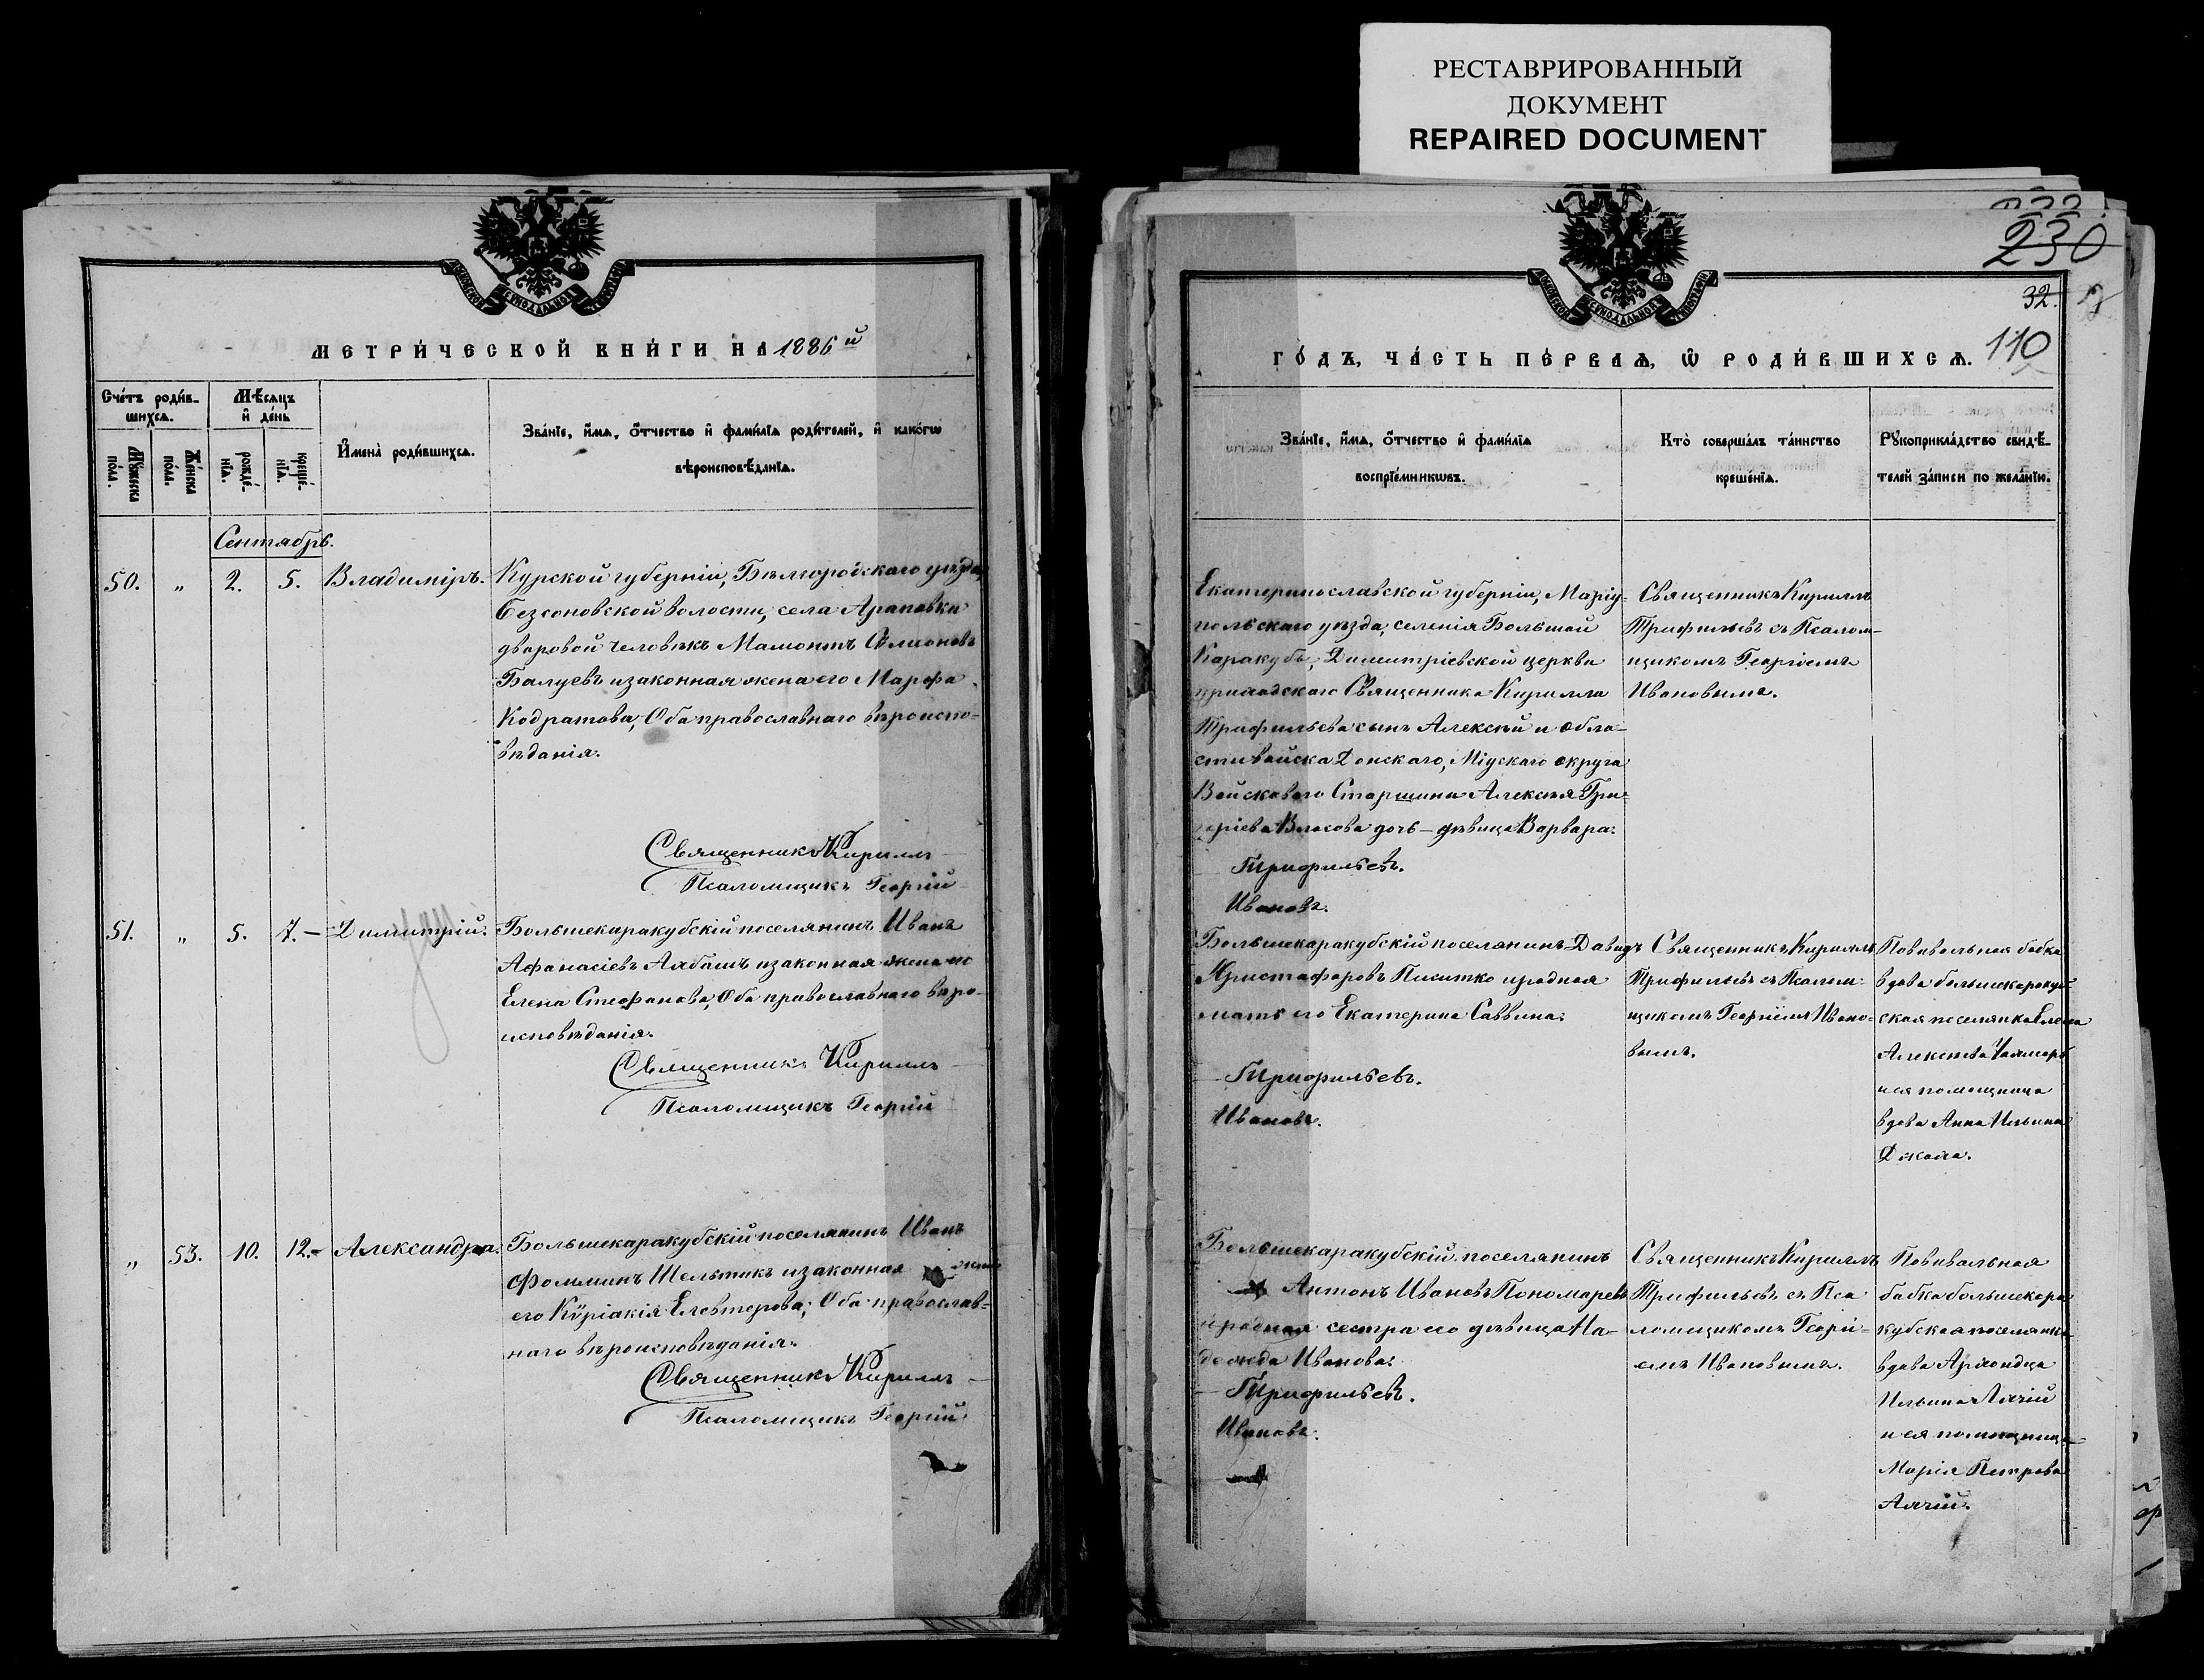 РЕСТАВРИРОВАННЫЙ
ДОКУМЕНТ
REPAIRED DOCUMENT
МЕТРИ́ЧЕСКОЙ КНИ́ГИ НА 1886й
Сче́тъ роди́в-
шихсѧ.
Мѣсѧцъ
и҆ де́нь
И҆мена̀ роди́вшихсѧ.
Зва́нїе, и҆́мѧ, ѻ҆́тчество и҆ фами́лїѧ роди́телей, и҆ како́гѡ
вѣроисповѣ́данїѧ.
Мꙋ́жеска
по́ла.
Же́нска
по́ла.
рожде́-
нїѧ.
креще́-
нїѧ.
Сентябрь.
50. " 2. 5. Владиміръ.
Курской губерніи, Бѣлгородскаго уѣзда,
Безсоновской волости, села Араповки
дворовой человѣкъ Мамонтъ Симоновъ
Балуевъ и законная жена его Марфа
Кодратова; Оба православнаго вѣроиспо-
вѣданія.
Священникъ Кириллъ
Псаломщикъ Георгій
51. " 5. 7. Димитрій.
Большекаракубскій поселянинъ Иванъ
Афанасіевъ Акбашъ и законная жена его
Елена Стефанова; Оба православнаго вѣро-
исповѣданія.
Священникъ Кириллъ
Псаломщикъ Георгій
" 53. 10. 12. Александра.
Большекаракубскій поселянинъ Иванъ
Фоминъ Шельтикъ и законная жена
его Кѵріакія Елевтерова; Оба православ-
наго вѣроисповѣданія.
Священникъ Кириллъ
Псаломщикъ Георгій
230
32.
110
ГО́ДЪ, ЧА́СТЬ ПЕ́РВАѦ, Ѽ РОДИ́ВШИХСѦ.
Зва́нїе, и҆́мѧ, ѻ҆́тчество и҆ фами́лїѧ
воспрїе́мникѡвъ.
Кто̀ соверша́лъ та́инство
креще́нїѧ.
Рꙋкоприкла́дство свидѣ́-
телей за́писи по жела́нїю.
Екатеринославской губерніи, Маріу-
польскаго уѣзда, селенія Большой
Каракубы, Димитріевской церкви
приходскаго Священника Кирилла
Трифильева сынъ Алексѣй и Обла-
сти войска Донскаго, Міускаго округа
Войсковаго Старшины Алексѣя Гри-
горіева Власова дочь - дѣвица Варвара.
Трифильевъ.
Ивановъ.
Священникъ Кириллъ
Трифильевъ съ Псалом-
щикомъ Георгіемъ
Ивановымъ.
Большекаракубскій поселянинъ Давидъ
Христофоровъ Писитко и родная
мать его Екатерина Саввина.
Трифильевъ.
Ивановъ.
Священникъ Кириллъ
Трифильевъ съ Псалом-
щикомъ Георгіемъ Ивано-
вымъ.
Повивальная бабка
вдова большекаракуб-
ская поселянка Елена
Алексѣева
и ея помощница
вдова Анна Ильина
Большекаракубскій поселянинъ
Антонъ Ивановъ Пономаревъ
и родная сестра его дѣвица На-
дежда Иванова.
Трифильевъ.
Ивановъ.
Священникъ Кириллъ
Трифильевъ съ Пса
ломщикомъ Георгі-
емъ Ивановымъ.
Повивальная
бабка большекара
кубская поселянка
вдова
Ильина Аячій
и ея помощница
Марія Петрова
Аячій.